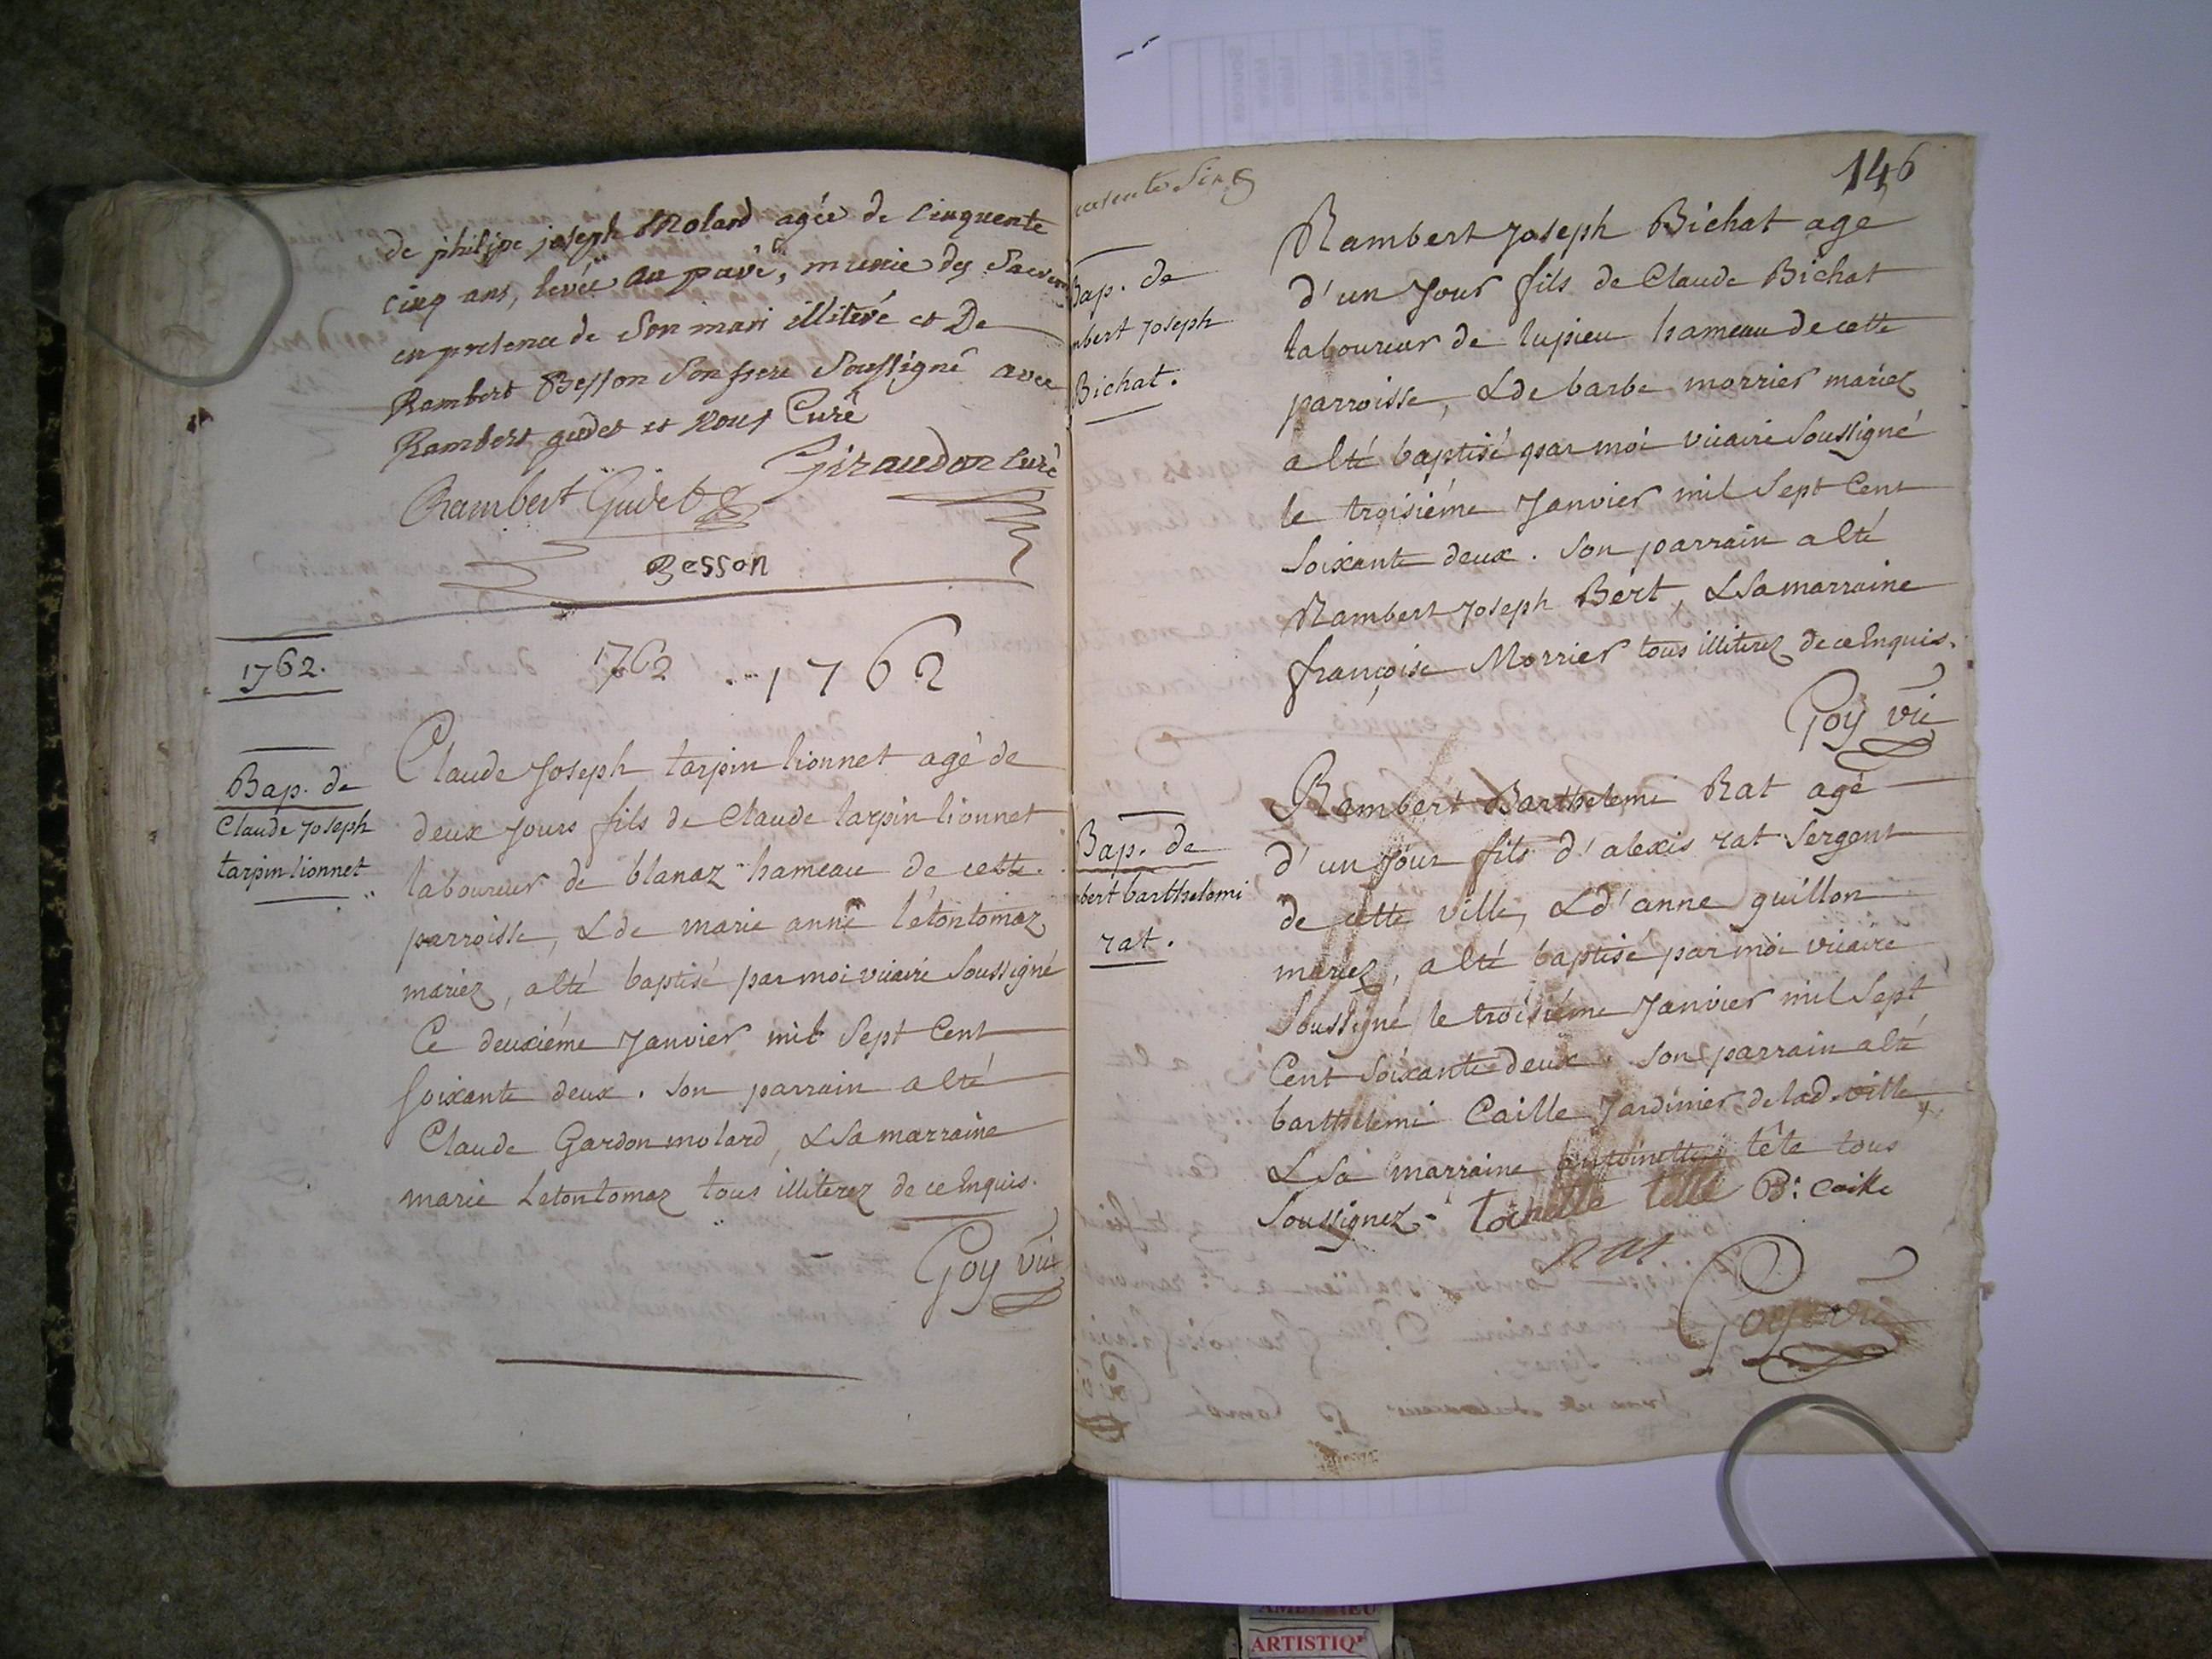 de philipe joseph Molard agée de Cinquente
cinq ans, levée au pavé, munie des Sacrem
en presence de Son mari illiteré et De
Rambert Besson Son frere Soussigné avec
Rambert gudet et Nous Curé
Giraudon Curé
Rambert Gudet
Besson
1762.
1762 1762
Bap. de
Claude Joseph
tarpin lionnet
Claude Joseph tarpin lionnet agé de
deux Jours fils de Claude tarpin lionnet
laboureur de blanaz hameau de cette
parroisse, & de marie anne létontomaz
mariez, a Eté baptisé par moi vicaire Soussigné
Ce deuxiéme Janvier mil Sept Cent
Soixante deux. Son parrain a Eté
Claude Gardon molard, & Sa marraine
marie Letontomaz tous illiterez de ce Enquis.
Goy vic
146
Bap. de
mbert Joseph
Bichat.
Rambert Joseph Bichat age
d'un Jour fils de Claude Bichat
laboureur de lupieu hameau de cette
parroisse, & de barbe morrier mariez
a Eté baptisé par moi vicaire Soussigné
le troisiéme Janvier mil Sept Cent
Soixante deux. Son parrain a Eté
Rambert Joseph Bért, & Sa marraine
françoise Morrier tous illiterez de ce Enquis.
Goy vic
Bap. de
mbert barthelemi
rat.
Rambert Barthelemi Rat agé
d'un Jour fils d'alexis rat Sergent
de cette ville, & d'anne guillon
mariez, a Eté baptisé par moi vicaire
Soussigné le troisiéme Janvier mil Sept
Cent Soixante deux. Son parrain a Eté
barthelemi Caille Jardinier de lad. ville,
& Sa marraine antoinette tête tous
Soussignez. toinette tette B. Caille
Rat
Goy vic
ARTISTIQ